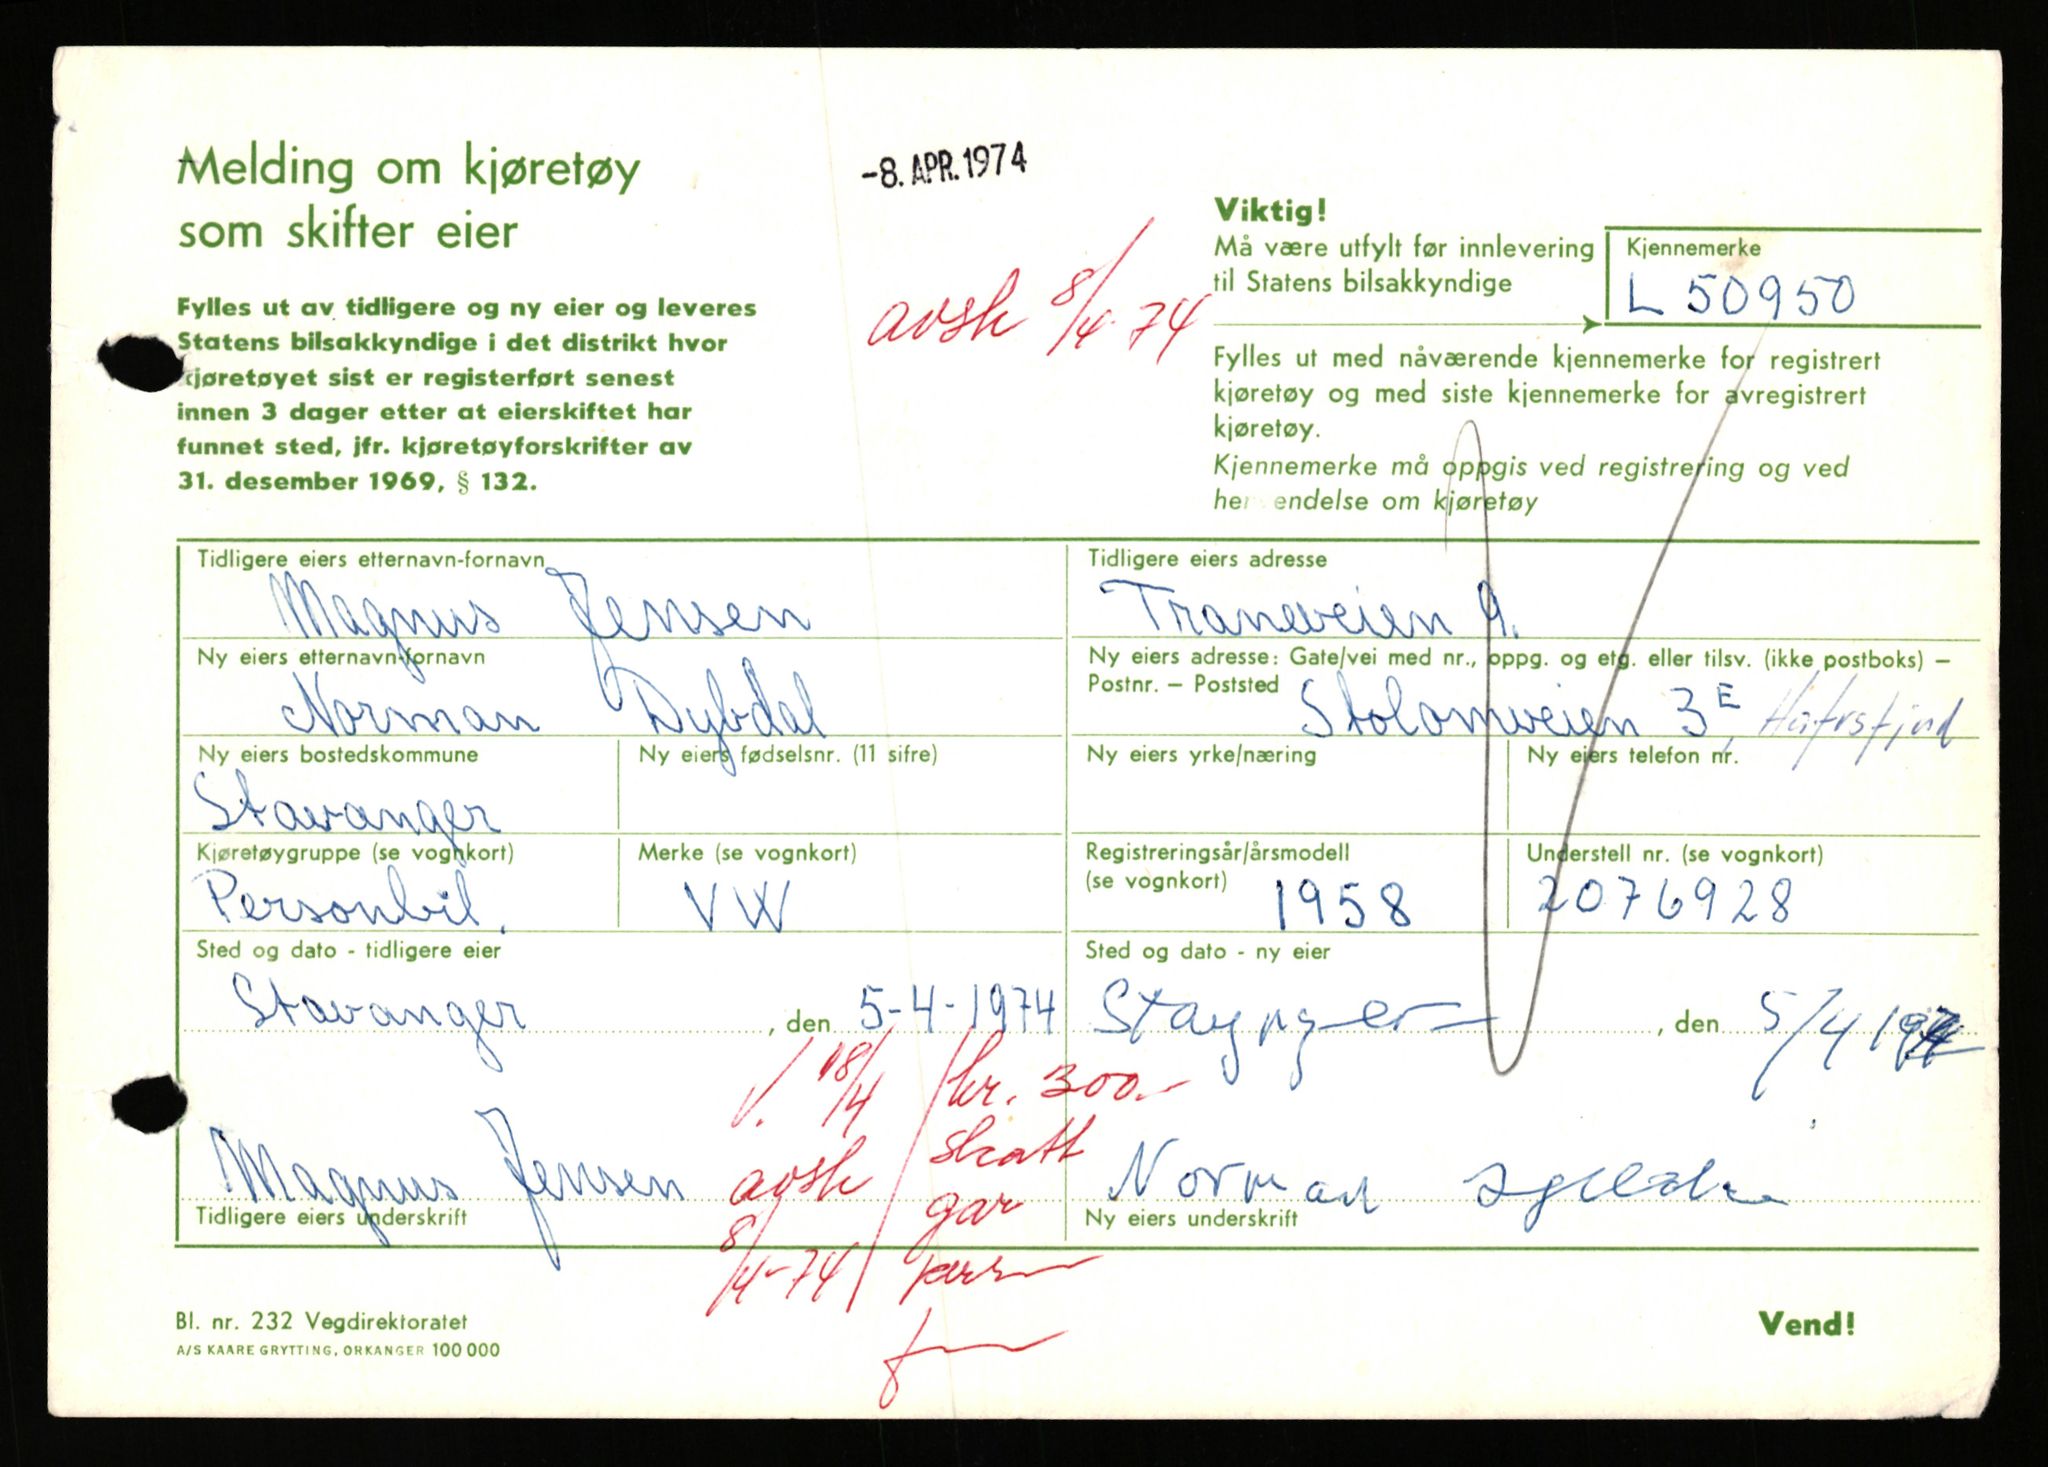 Melding om kjøretøy
som skifter eier
-8. APR. 1974
Fylles ut av tidligere og ny eier og leveres
Statens bilsakkyndige i det distrikt hvor
kjøretøyet sist er registerført senest
innen 3 dager etter at eierskiftet har
funnet sted, jfr. kjøretøyforskrifter av
31. desember 1969, § 132.
avsk 8/4-74
Viktig!
Må være utfylt før innlevering
til Statens bilsakkyndige
Kjennemerke
L 50950
Fylles ut med nåværende kjennemerke for registrert
kjøretøy og med siste kjennemerke for avregistrert
kjøretøy.
Kjennemerke må oppgis ved registrering og ved
henvendelse om kjøretøy
Tidligere eiers etternavn-fornavn
Magnus Jensen
Tidligere eiers adresse
Traneveien 9.
Ny eiers etternavn-fornavn
Norman Dybdal
Ny eiers adresse: Gate/vei med nr., oppg. og etg. eller tilsv. (ikke postboks) –
Postnr. – Poststed
Stolomveien 3E, Hafrsfjord
Ny eiers bostedskommune
Stavanger
Ny eiers fødselsnr. (11 sifre)
Ny eiers yrke/næring
Ny eiers telefon nr.
Kjøretøygruppe (se vognkort)
Personbil.
Merke (se vognkort)
VW
Registreringsår/årsmodell
(se vognkort)
1958
Understell nr. (se vognkort)
2076928
Sted og dato - tidligere eier
Stavanger, den 5-4-1974
Sted og dato - ny eier
Stavanger, den 5/4 1974
V. 18/4
avsk
8/4-74
kr. 300.-
skatt
gar
Magnus Jensen
Tidligere eiers underskrift
Norman
Ny eiers underskrift
Bl. nr. 232 Vegdirektoratet
A/S KAARE GRYTTING, ORKANGER 100 000
Vend!